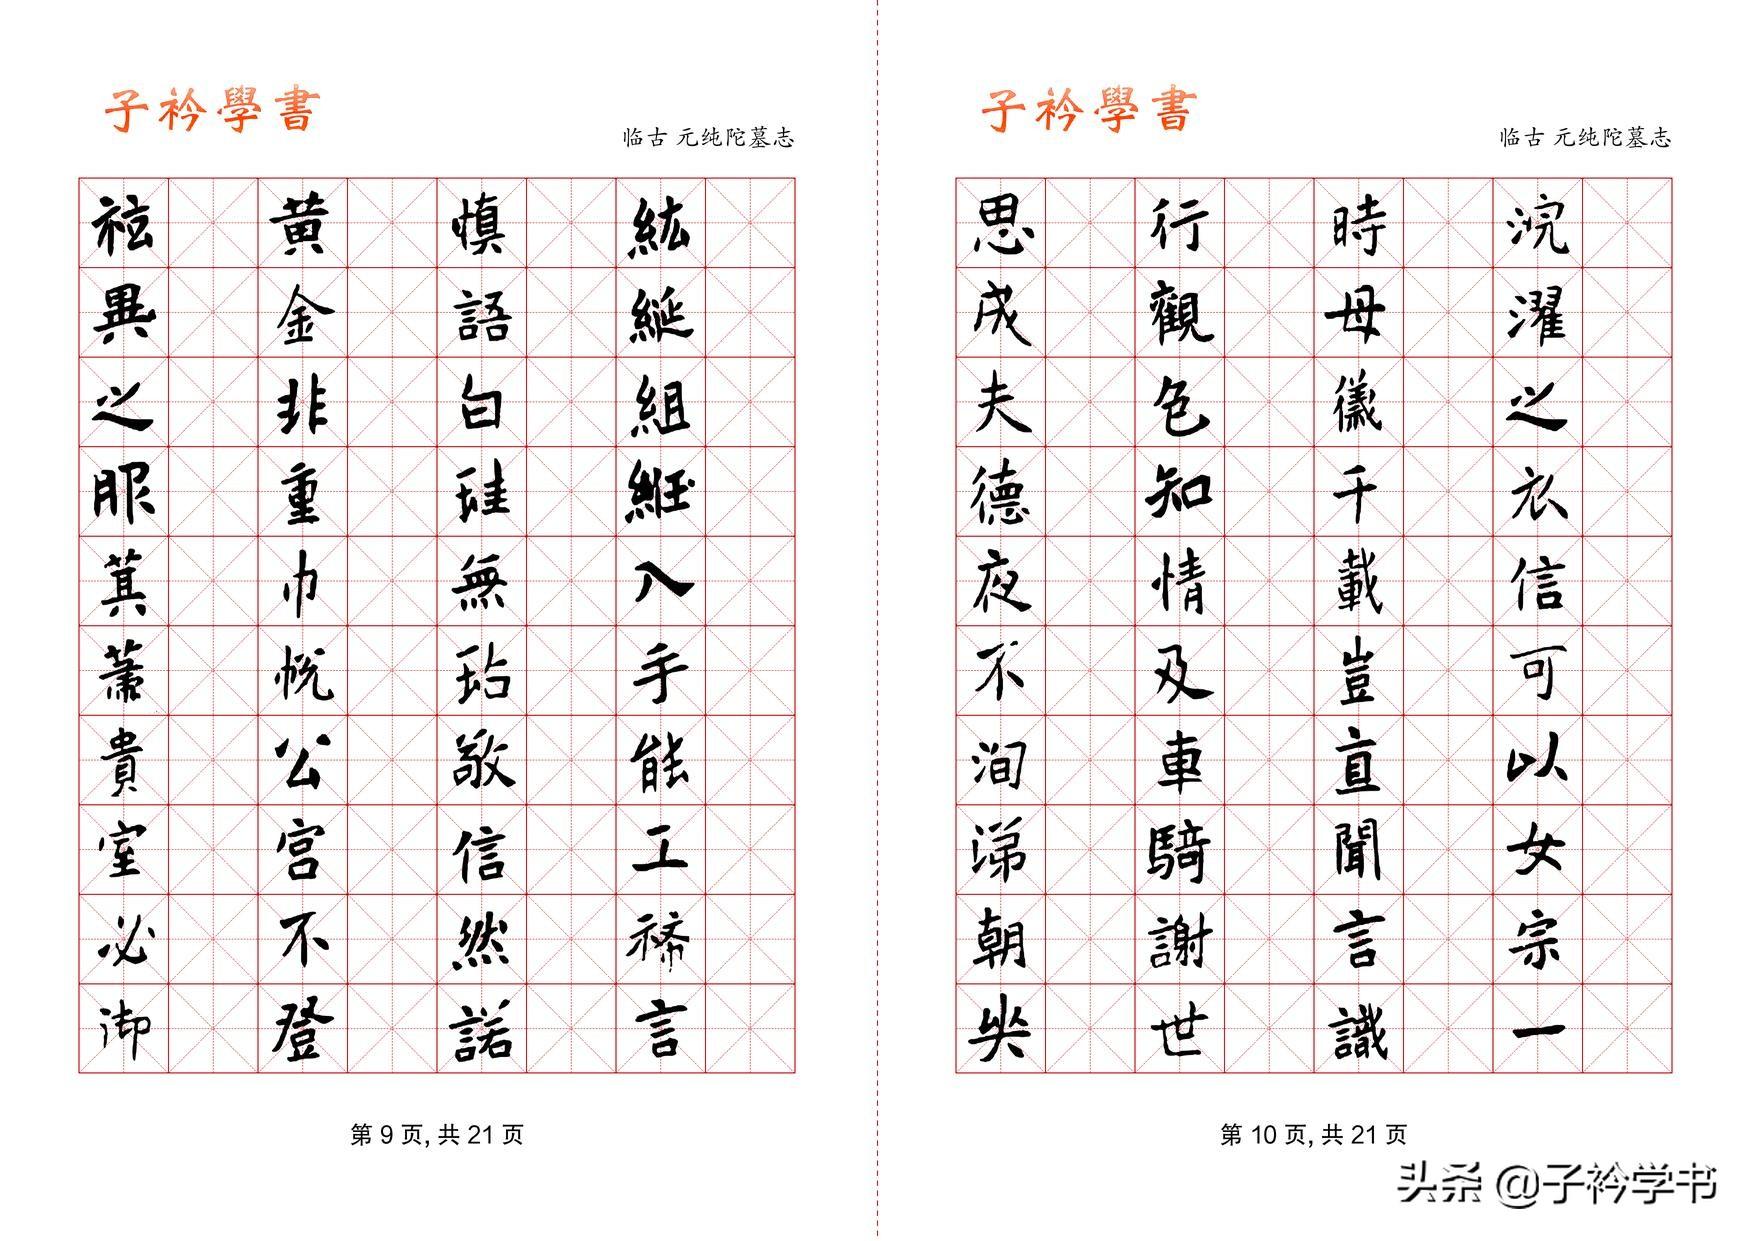 子衿學書
临古 元纯陀墓志
紘綖組紝入手能工稀言
慎語白珪無玷敬信然諾
黄金非重巾帨公宮不登
袨異之服箕箒貴室必御
第 9 页, 共 21 页
子衿學書
临古 元纯陀墓志
浣濯之衣信可以女宗一
時母儀千載豈直聞言識
行觀色知情及車騎謝世
思成夫德夜不洵涕朝哭
第 10 页, 共 21 页
头条 @子衿学书